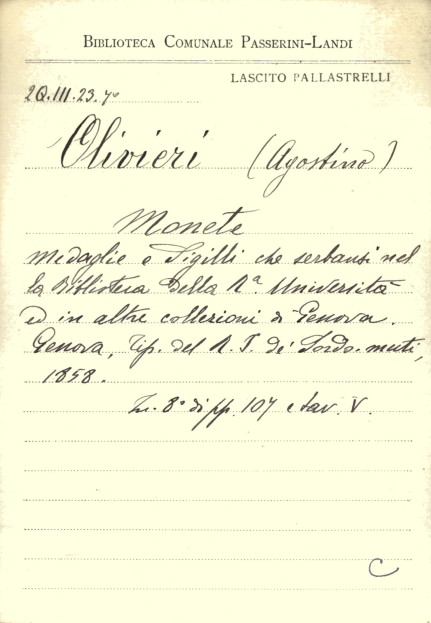 BIBLIOTECA COMUNALE PASSERINI-LANDI
LASCITO PALLASTRELLI
2Q.III.23.7º
Olivieri (Agostino)
Monete
medaglie e Sigilli che serbansi nel
la Biblioteca della Rª. Università
ed in altre collezioni di Genova.
Genova, Tip. del R. I. de' Sordo-muti,
1858.
In 8º di pp. 107 e tav. V.
C